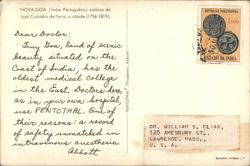 NOVA-GOA (Índia Portuguesa) estátua de
José Custódio de Faria, o abade (1756-1819).
Dear Doctor:
Tiny Goa, land of scenic
beauty situated on the
Coast of India, has the
oldest medical college
in the East. Doctors here,
as in your own hospital,
use PENTOTHAL. One of
their reasons: a record
of safety unmatched in
intravenous anesthesia.
Abbott
ESTADO DA INDIA
DR. WILLIAM S. ELIAS,
125 AMESBURY ST.,
LAWRENCE, MASS.,
U. S. A.